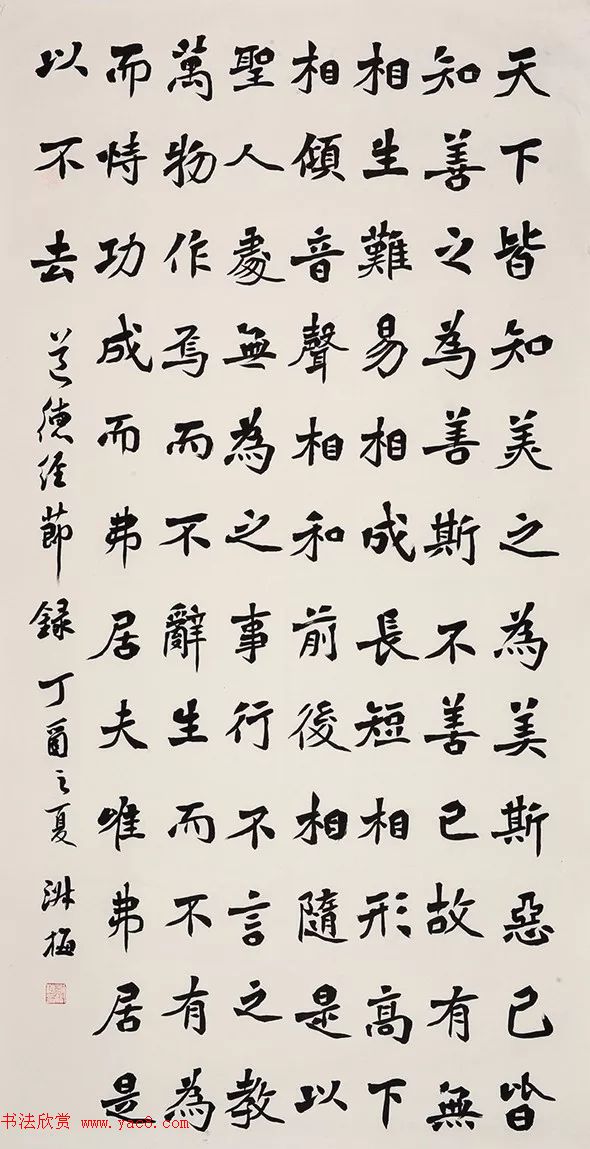 天下皆知美之為美斯惡已皆
知善之為善斯不善已故有無
相生難易相成長短相形高下
相傾音聲相和前後相隨是以
聖人處無為之事行不言之教
萬物作焉而不辭生而不有為
而恃功成而弗居夫唯弗居是
以不去 道德經節錄 丁酉之夏 梅
书法欣赏 www.yac8.com